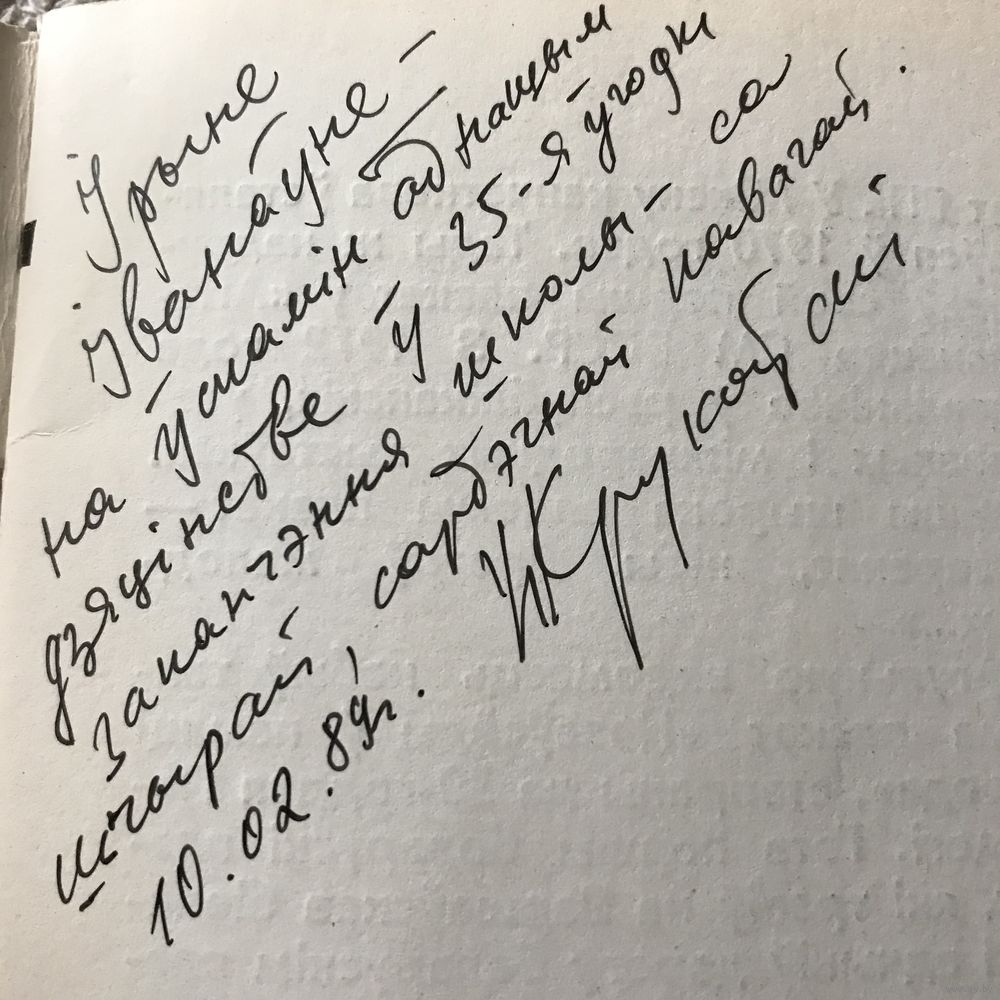 Ірыне
Іванаўне –
на ўспамін аб нашым
дзяцінстве ў 35-я ўгодкі
заканчэння школы – са
шчырай, сардэчнай павагай.
10.02.89г.